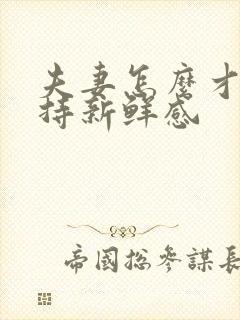 夫妻怎麼才
持新鮮感
帝國總參謀長